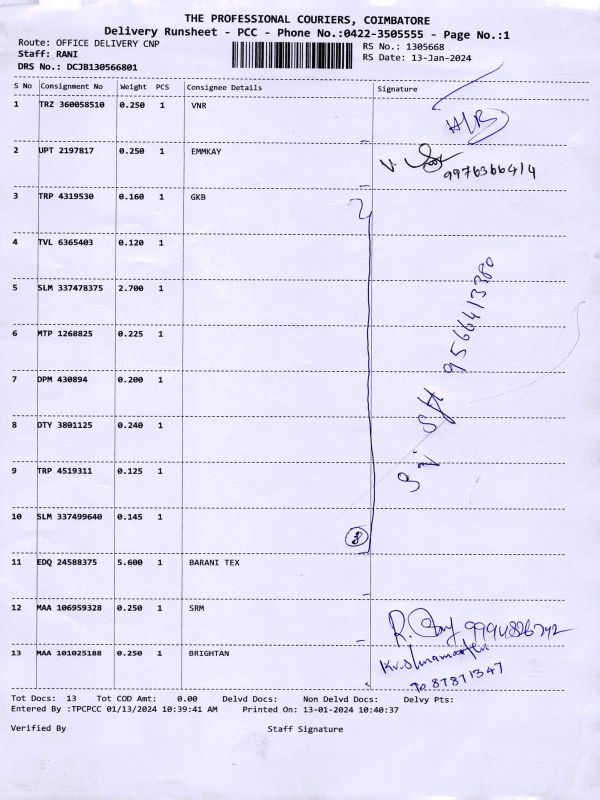 THE PROFESSIONAL COURIERS, COIMBATORE
Delivery Runsheet - PCC - Phone No.:0422-3505555 - Page No.:1
Route: OFFICE DELIVERY CNP
RS No.: 1305668
Staff: RANI
RS Date: 13-Jan-2024
DRS No.: DCJB130566801
S No Consignment No Weight PCS Consignee Details Signature
1 TRZ 360058510 0.250 1 VNR
2 UPT 2197817 0.250 1 EMMKAY
V.
3 TRP 4319530 0.160 1 GKB
4 TVL 6365403 0.120 1
5 SLM 337478375 2.700 1
9566413380
6 MTP 1268825 0.225 1
7 DPM 430894 0.200 1
8 OTY 3801125 0.240 1
9 TRP 4519311 0.125 1
10 SLM 337499640 0.145 1
8
11 EDQ 24588375 5.600 1 BARANI TEX
12 MAA 106959328 0.250 1 SRM
R.
13 MAA 101025188 0.250 1 BRIGHTAN
Tot Docs: 13 Tot COD Amt: 0.00 Delvd Docs: Non Delvd Docs: Delvy Pts:
Entered By :TPCPCC 01/13/2024 10:39:41 AM Printed On: 13-01-2024 10:40:37
Verified By Staff Signature